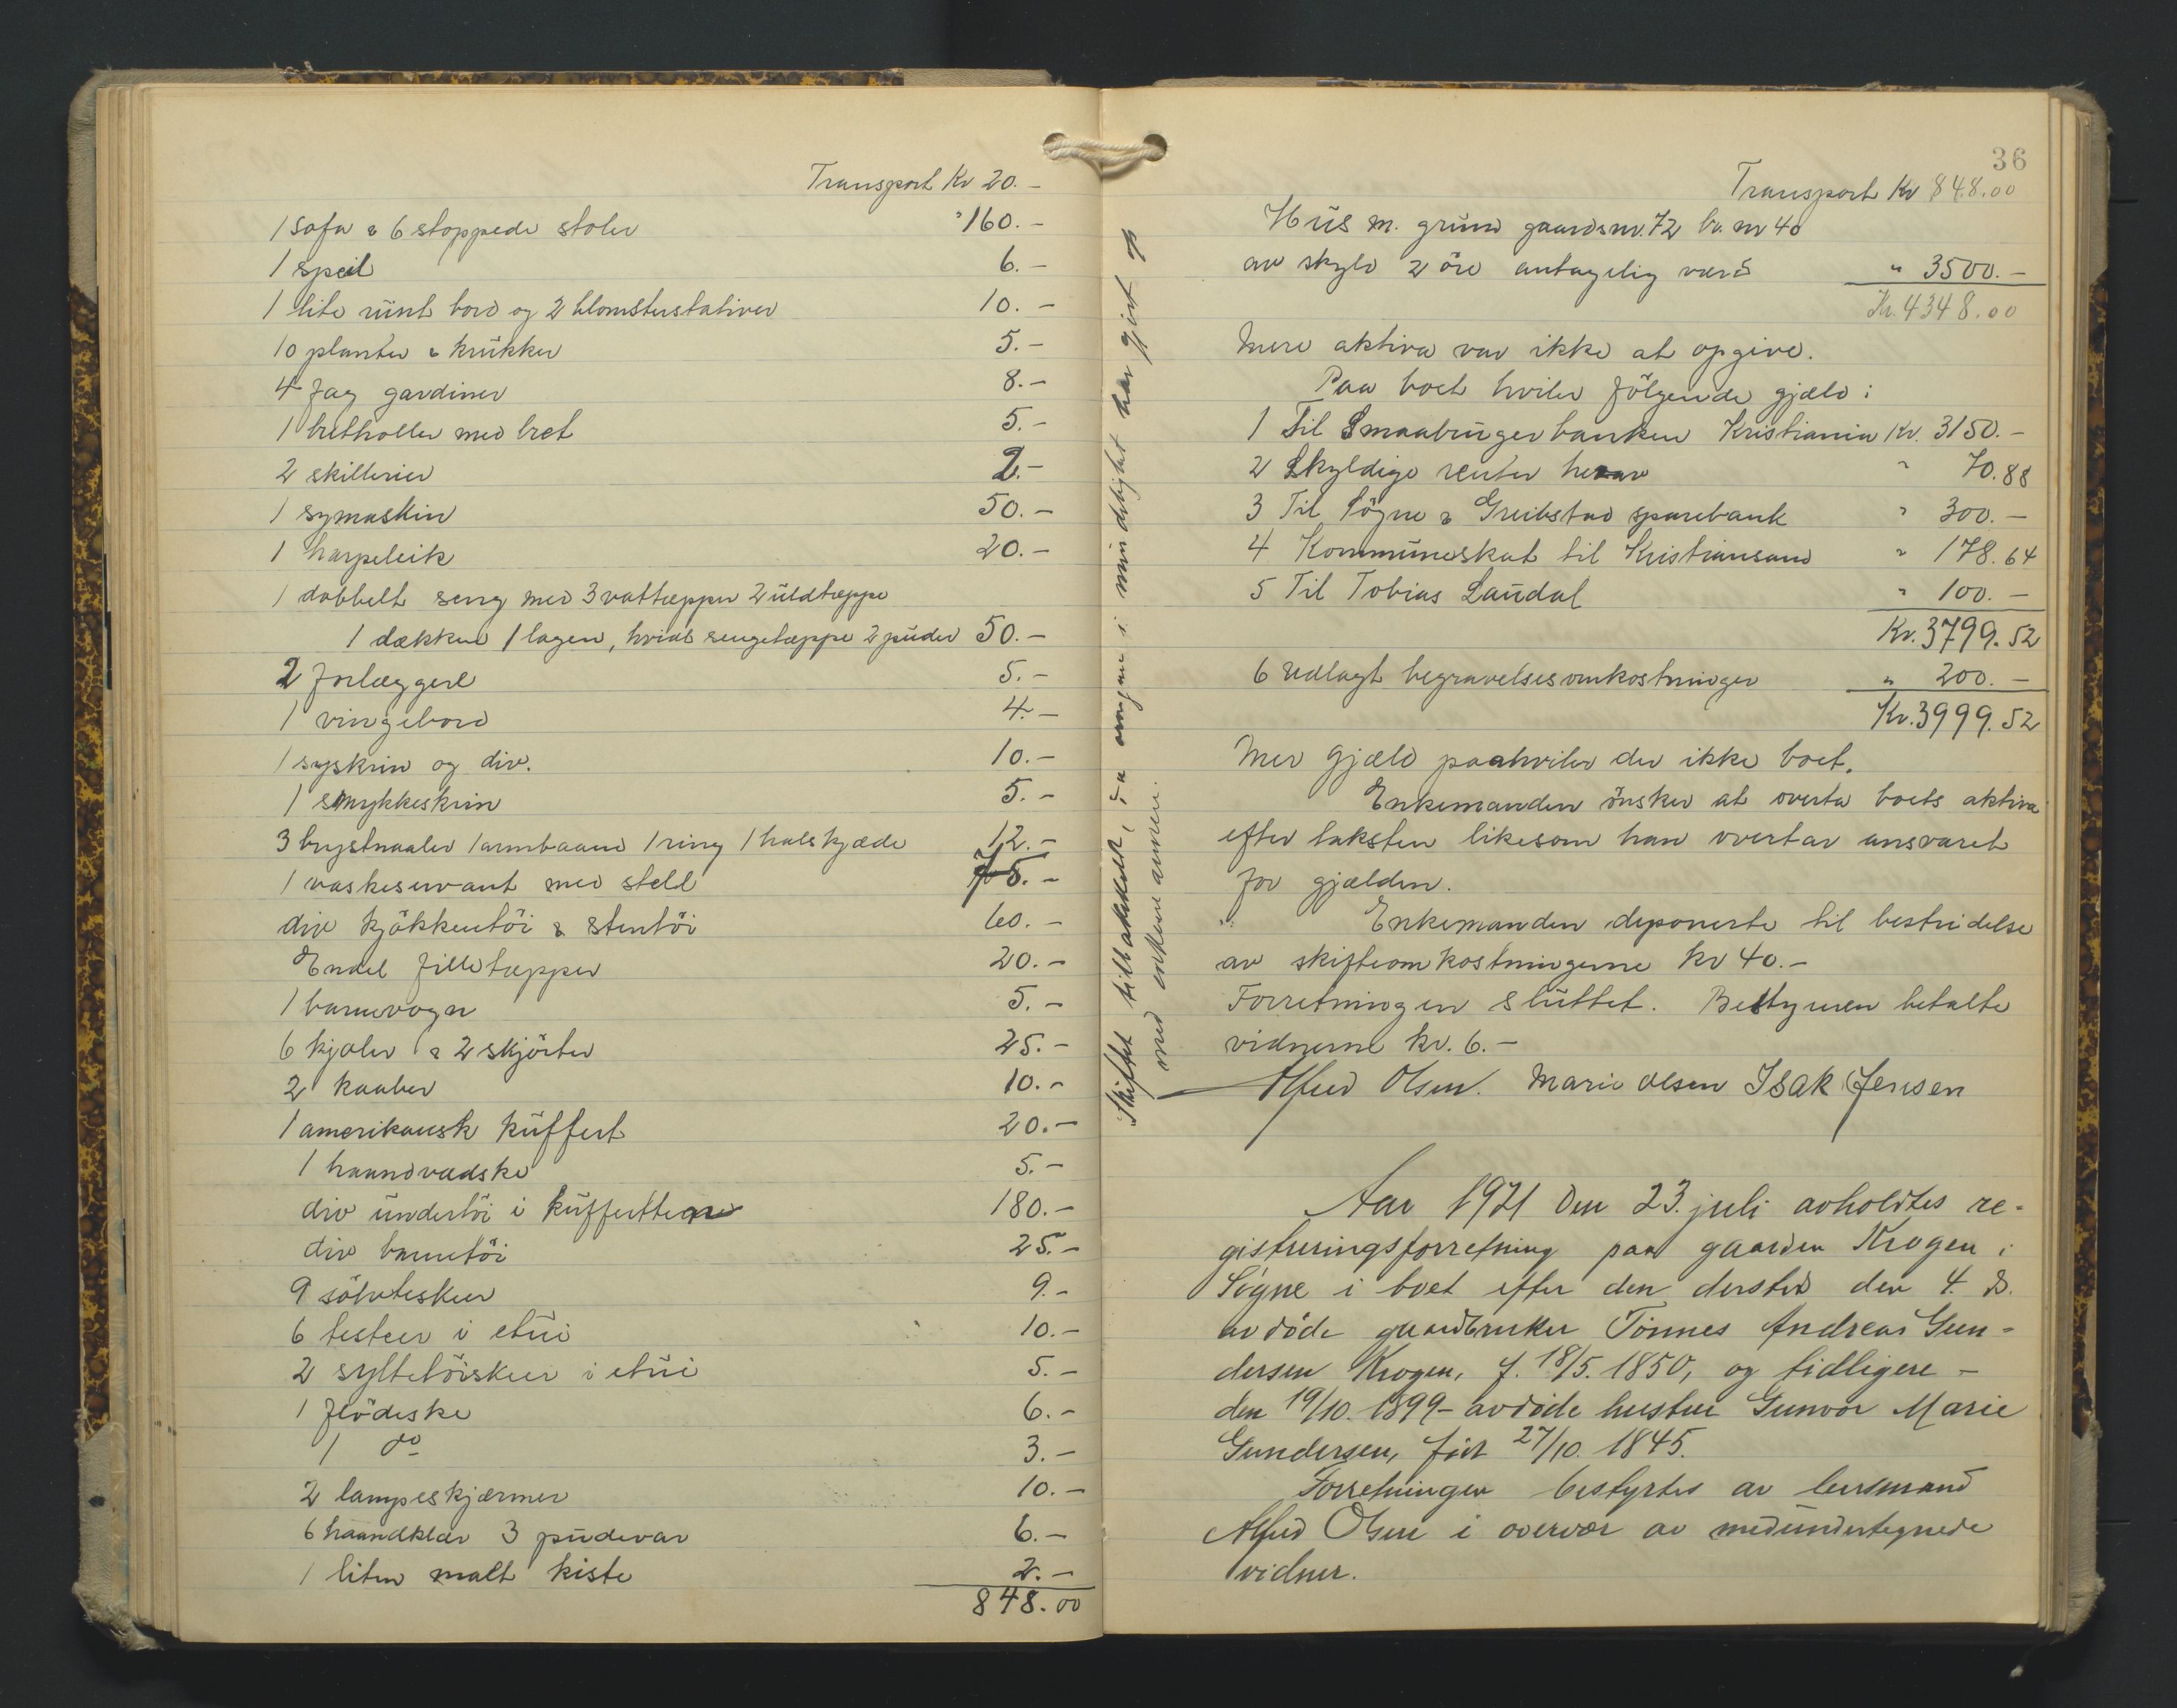 Transport Kr 20.-
1 sofa & 6 stoppede stoler " 160.-
1 speil 6.-
1 lite rundt bord og 2 blomsterstativer 10.-
10 planter & krukker 5.-
4 fag gardiner 8.-
1 bretholler med bret 5.-
2 skillerier 2.-
1 symaskin 50.-
1 harpeleik 20.-
1 dobbelt seng med 3 vattæpper 2 uldtæppe
1 dækken 1 lagen, hvidt sengetæppe 2 puder 50.-
2 forlæggere 5.-
1 vingebord 4.-
1 syskrin og div. 10.-
1 smykkeskrin 5.-
3 brystnaaler 1 armbaand 1 ring 1 halskjæde 12.-
1 vaskeservant med stell 75.-
div kjökkentöi & stentöi 60.-
Endel filletæpper 20.-
1 barnevogn 5.-
6 kjoler & 2 skjörter 25.-
2 kaaber 10.-
1 amerikansk kuffert 20.-
1 haandvædske 5.-
div undertöi i kufferten 180.-
div barnetöi 25.-
9 sölvteskeer 9.-
6 teskeer i etui 10.-
2 syltetöiskeer i etui 5.-
1 flödeske 6.-
1 do 3.-
2 lampeskjærmer 10.-
6 haandklær 3 pudevar 6.-
1 liten malt kiste 2.-
848.00
Skiftet tilbakekaldt, da arvingene i mindelighet har gjort op
med enkemannen.
36
Transport Kr 848.00
Hus m. grund gaardsnr. 72 br. nr 40
av skyld 2 öre antagelig værd " 3500.-
Kr. 4348.00
Mere aktiva var ikke at opgive.
Paa boet hviler fölgende gjæld:
1 Til Smaabrugerbanken Kristiania Kr. 3150.-
2 Skyldige renter herav " 70.88
3 Til Sögne & Greibstad sparebank " 300.-
4 Kommuneskat til Kristiansand " 178.64
5 Til Tobias Laudal " 100.-
Kr. 3799.52
6 Udlagt begravelsesomkostninger " 200.-
Kr. 3999.52
Mer gjæld paahviler der ikke boet.
Enkemanden önsker at overta boets aktiva
efter taksten likesom han overtar ansvaret
for gjælden.
Enkemanden deponerte til bestridelse
av skifteomkostningerne kr 40.-
Forretningen sluttet. Bestyreren betalte
vidnerne kr. 6.-
Alfred Olsen. Marie Olsen Isak Jensen
Aar 1921 den 23. juli avholdtes re-
gistreringsforretning paa gaarden Krogen i
Søgne i boet efter den dersteds den 4. ds.
avdøde gaardbruker Tønnes Andreas Gun-
dersen Krogen, f. 18/5. 1850, og tidligere -
den 19/10. 1899 - avdøde hustru Gunvor Marie
Gundersen, født 27/10. 1845.
Forretningen bestyrtes av lensmand
Alfred Olsen i overvær av medundertegnede
vidner.